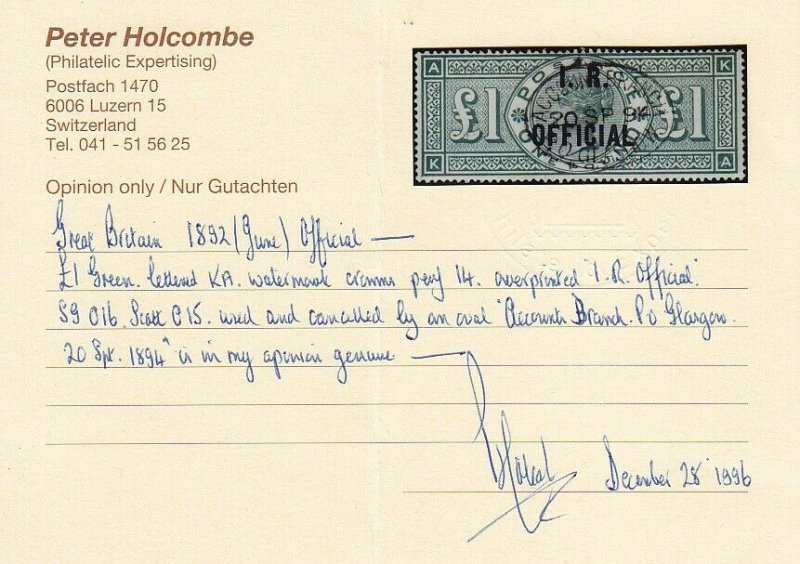 Peter Holcombe
(Philatelic Expertising)
Postfach 1470
6006 Luzern 15
Switzerland
Tel. 041 - 51 56 25
Opinion only / Nur Gutachten
A K
I. R.
£1 £1
20 SP 9
OFFICIAL
K A
Great Britain 1892 (June) Official —
£1 Green. lettered KA. watermark crowns perf 14. overprinted "I. R. Official"
SG O16. Scott O15. used and cancelled by an oval "Accounts Branch. Po Glasgow.
20 Spt. 1894" is in my opinion genuine —
December 28 1996